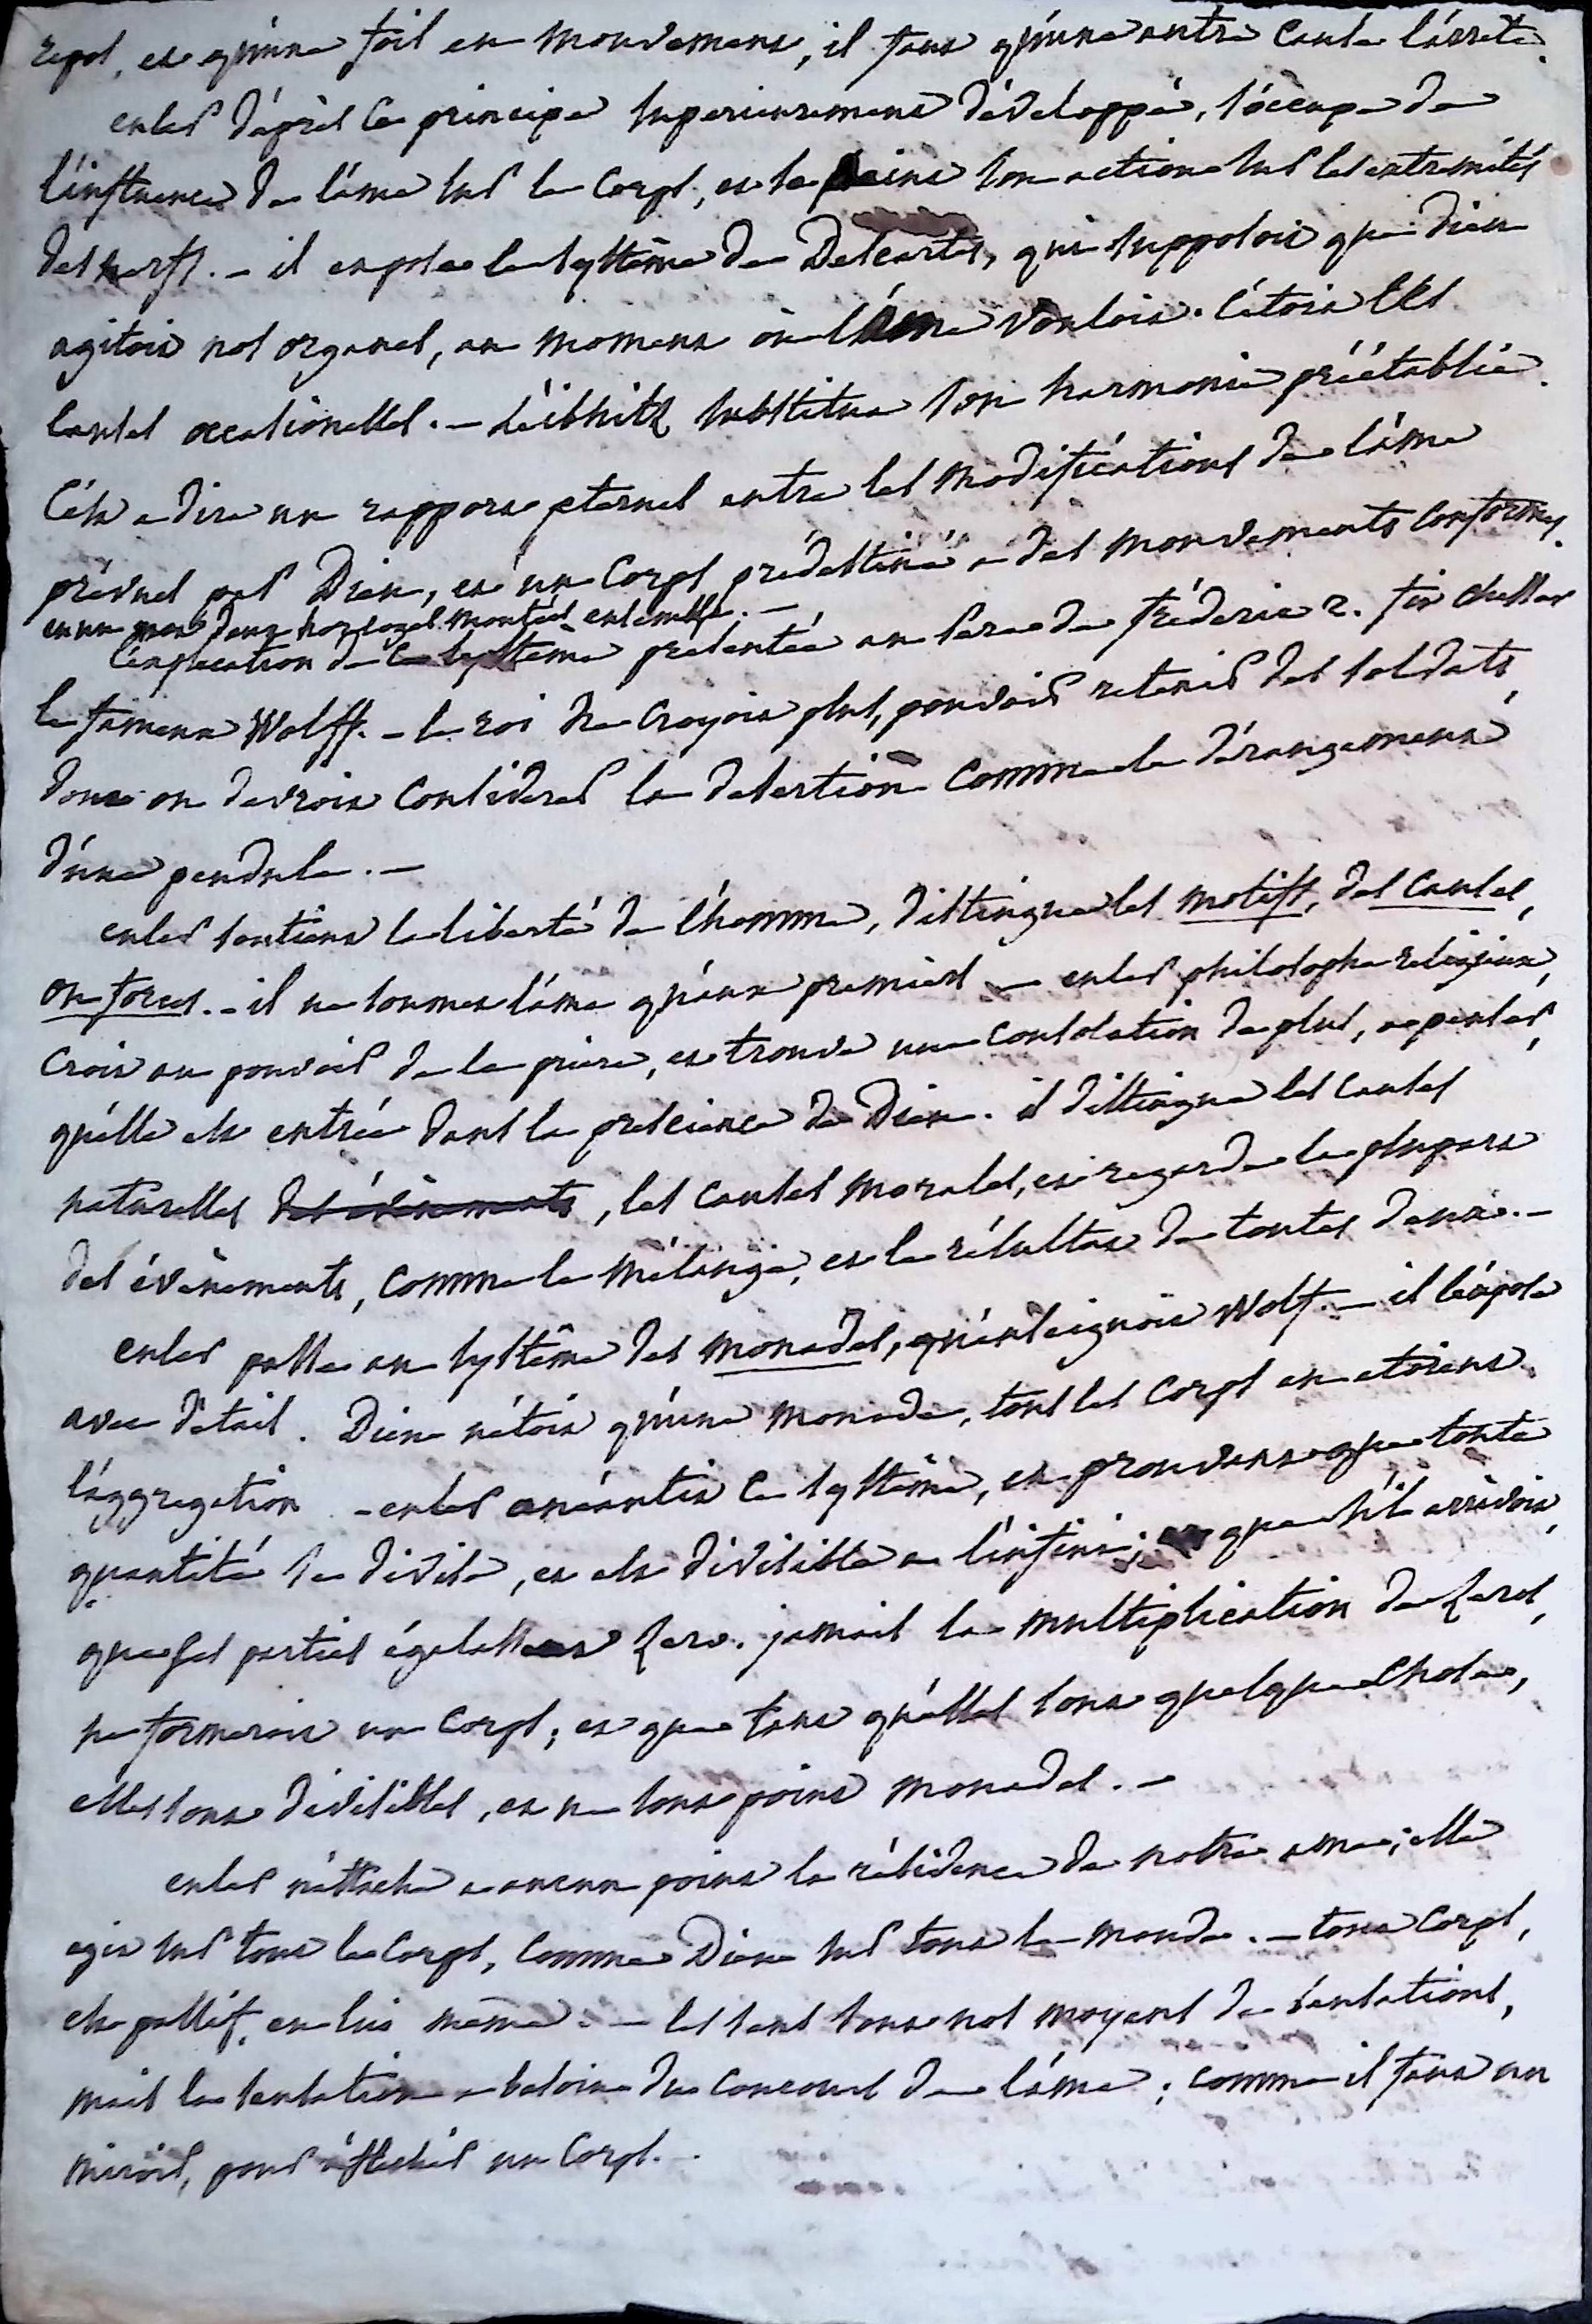 repos, et qu'une fois en mouvement, il faut qu'une autre cause l'arrête.
euler d'après ce principe superieurement développé, s'occupe de
l'influence de l'ame sur le corps, et la peint son action sur les extremités
des nerfs. - il expose le systême de Descartes, qui supposoit que dieu
agitoit nos organes, au moment où l'âme vouloit. c'étoit les
causes occasionelles. - Leibnitz substitua son harmonie préétablie.
C'est a dire un rapport eternel entre les modifications de l'âme
prévues par Dieu, et un corps prédestiné a des mouvements conformes.
en un mot deux horloges montées ensemble. -
l'explication de ce systême presentée au pere de fréderic 2. fit chasser
le fameux Wolff. - le roi ne croyoit plus, pouvoir retenir des soldats,
dont on devroit considerer la desertion comme le dérangement
d'une pendule. -
euler soutient la liberté de l'homme, distingue les motifs, des causes,
ou forces. - il ne soumet l'âme qu'aux premiers - euler philosophe religieux,
croit au pouvoir de la priere, et trouve une consolation de plus, a penser,
qu'elle est entrée dans la prescience de Dieu. il distingue les causes
naturelles des évènements, les causes morales, et regarde la plupart
des évènements, comme le mélange, et le résultat de toutes deux. -
euler passe au systême des monades, qu'enseignoit Wolf. - il l'expose
avec détail. Dieu n'étoit qu'une monade, tous les corps en etoient
l'aggregation - euler anéantit ce systême, en prouvant que toute
quantité se divise, et est divisible a l'infini; que s'il arrivoit,
que ses parties égalassent zero. jamais la multiplication de zeros,
ne formeroit un corps; et que tant qu'elles sont quelque chose,
elles sont divisibles, et ne sont point monades. -
euler n'attache a aucun point la résidence de notre ame; elle
agit sur tout le corps, comme Dieu sur tout le monde. - tout corps,
est passif, en lui même. - les sens sont nos moyens de sensations,
mais la sensation a besoin du concours de l'âme; comme il faut un
miroir, pour réflechir un corps. -